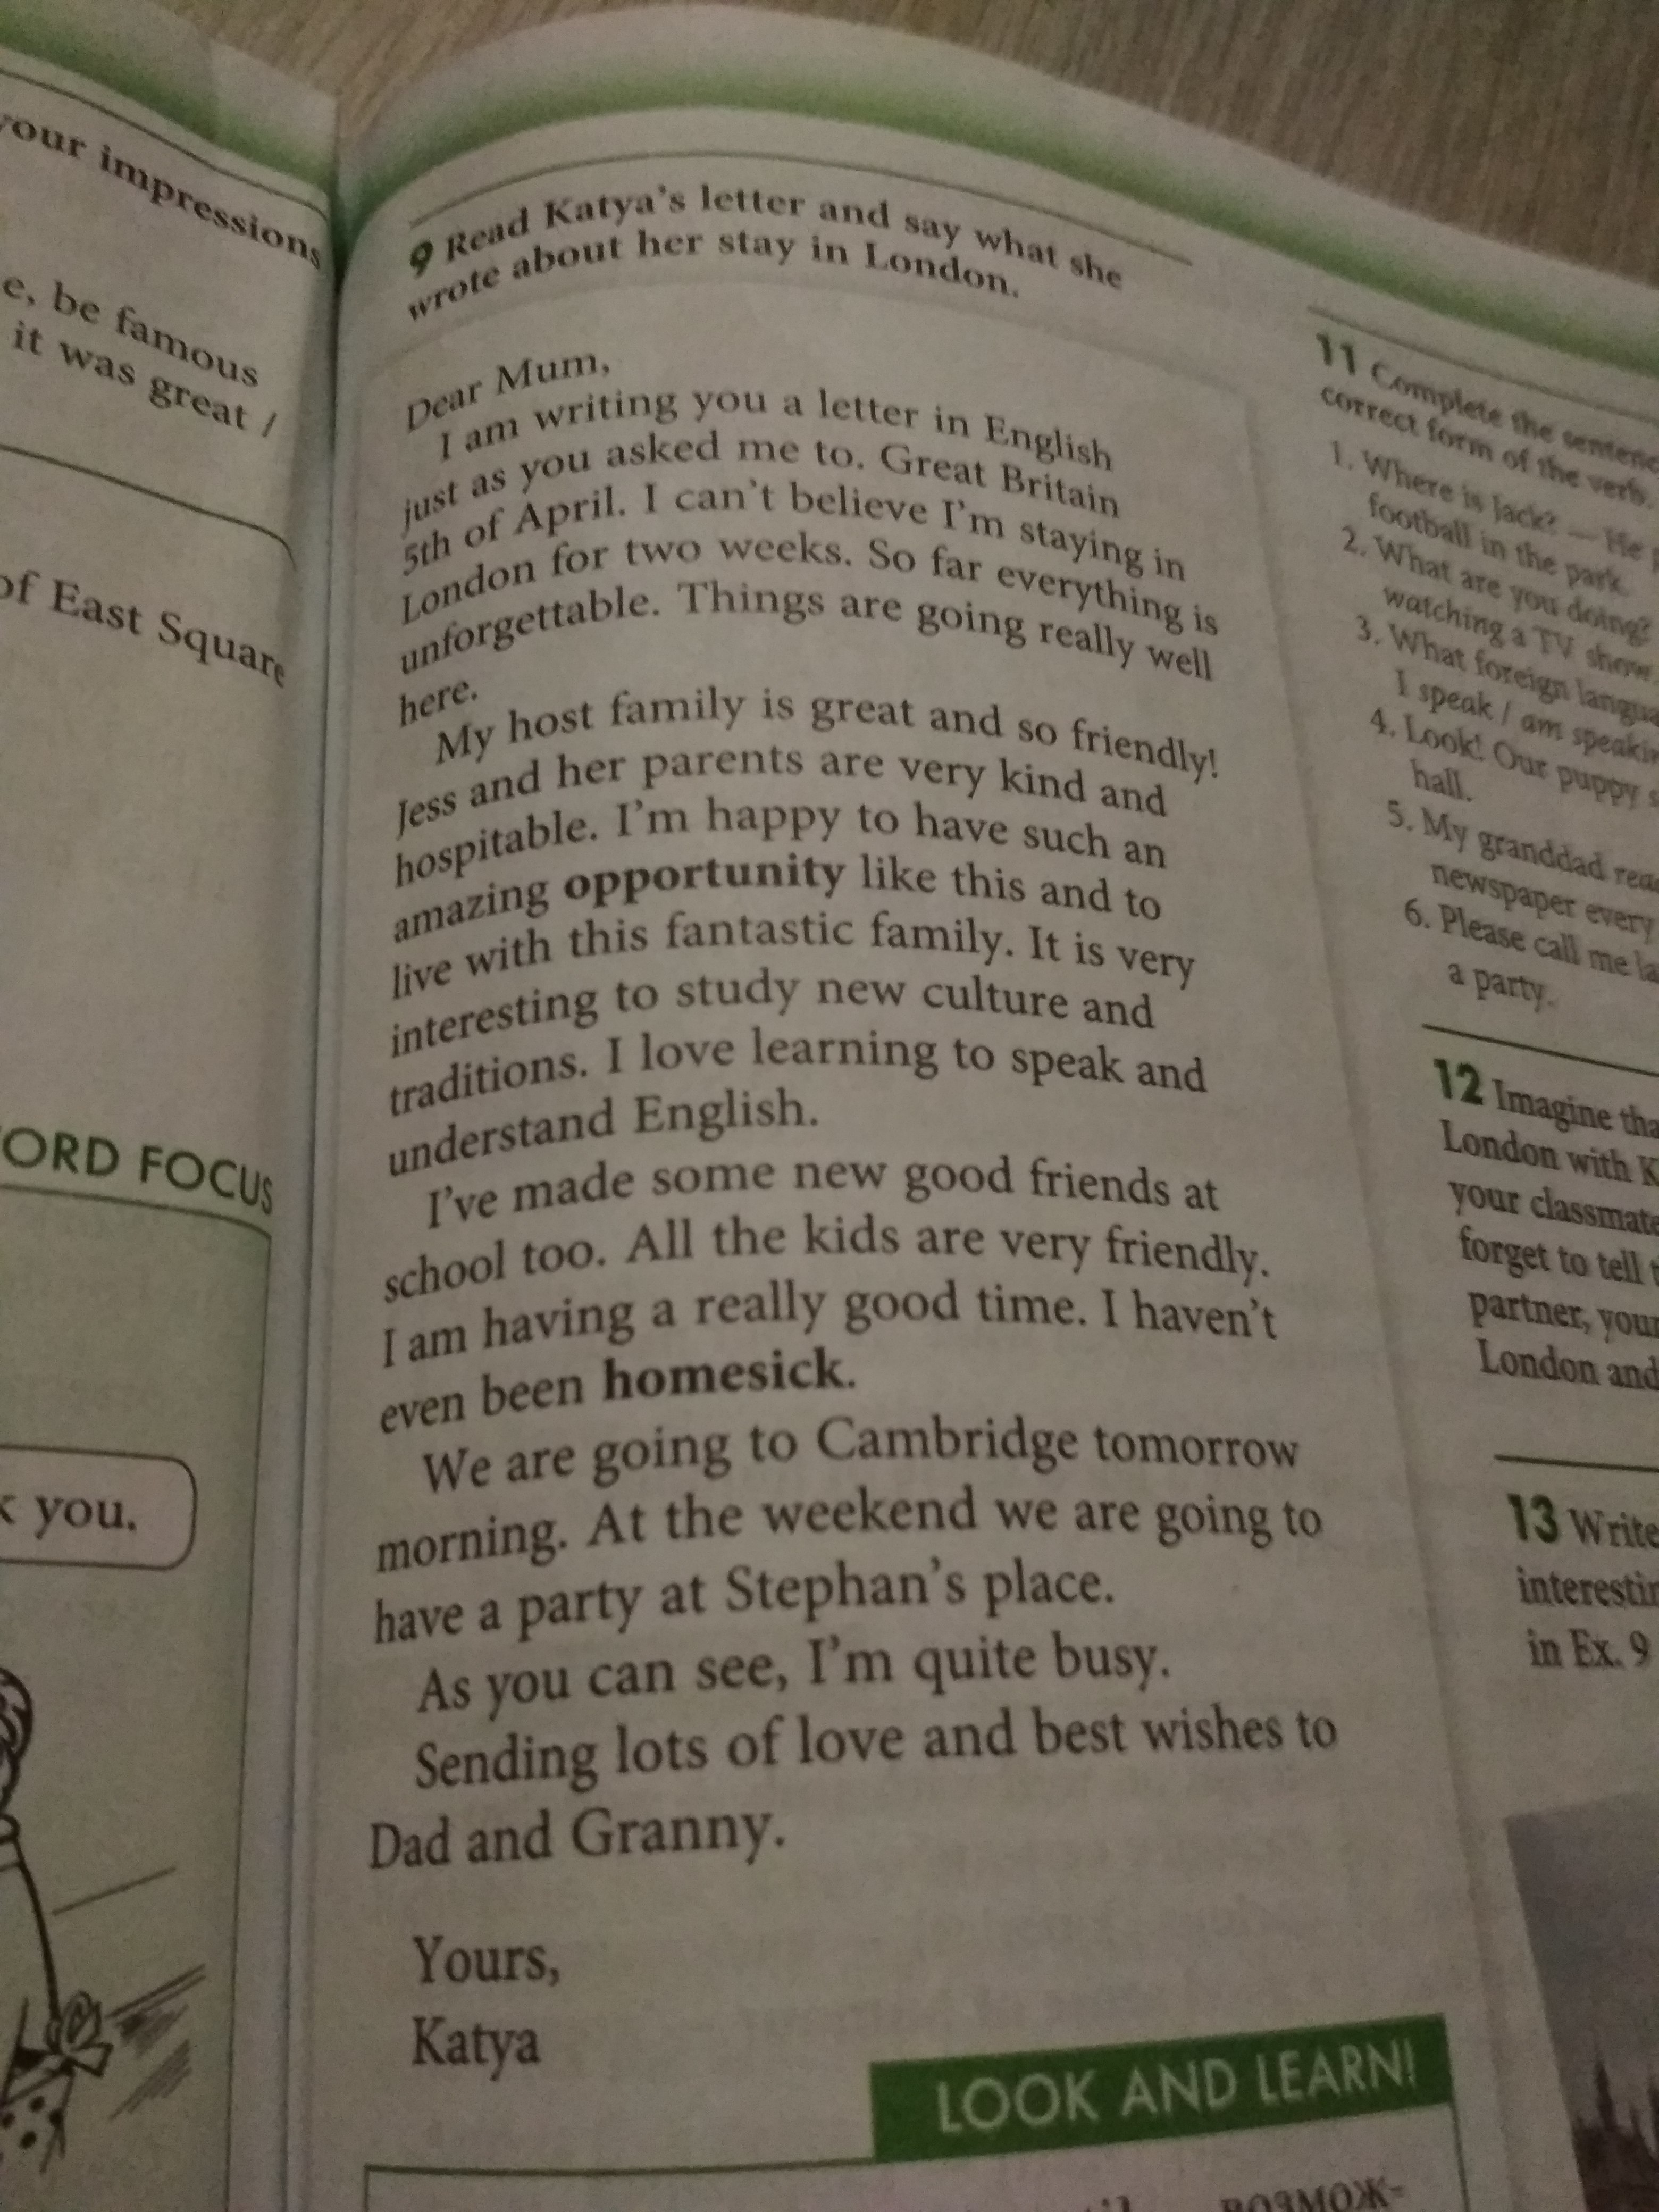 your impressions
e, be famous
it was great /
of East Square
WORD FOCUS
you.
9 Read Katya's letter and say what she
wrote about her stay in London.
Dear Mum,
I am writing you a letter in English
just as you asked me to. Great Britain
5th of April. I can't believe I'm staying in
London for two weeks. So far everything is
unforgettable. Things are going really well
here.
My host family is great and so friendly!
Jess and her parents are very kind and
hospitable. I'm happy to have such an
amazing opportunity like this and to
live with this fantastic family. It is very
interesting to study new culture and
traditions. I love learning to speak and
understand English.
I've made some new good friends at
school too. All the kids are very friendly.
I am having a really good time. I haven't
even been homesick.
We are going to Cambridge tomorrow
morning. At the weekend we are going to
have a party at Stephan's place.
As you can see, I'm quite busy.
Sending lots of love and best wishes to
Dad and Granny.
Yours,
Katya
LOOK AND LEARN!
возмож-
11 Complete the
correct form of the verb.
1. Where is Jack? — He
football in the park.
2. What are you doing?
watching a TV show.
3. What foreign
I speak / am
4. Look! Our puppy
hall.
5. My granddad
newspaper every
6. Please call me
a party.
12 Imagine
London with
your
forget to tell
partner,
London and
13 Write
in Ex. 9